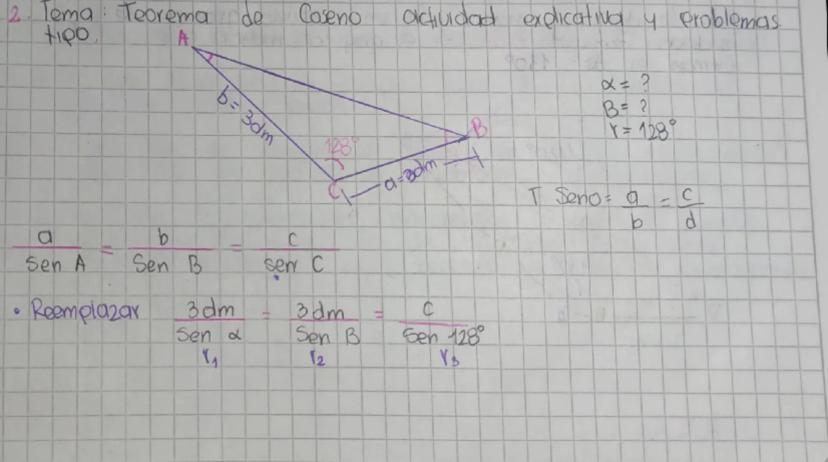 2. Tema: Teorema de Coseno actividad explicativa y problemas
tipo.
A
b = 3dm
128°
B
C
a=3dm
α = ?
B = ?
γ = 128°
T Seno = a/b = c/d
a/Sen A = b/Sen B = c/sen C
• Reemplazar 3dm/Sen α = 3dm/Sen B = c/Sen 128°
r1 r2 r3